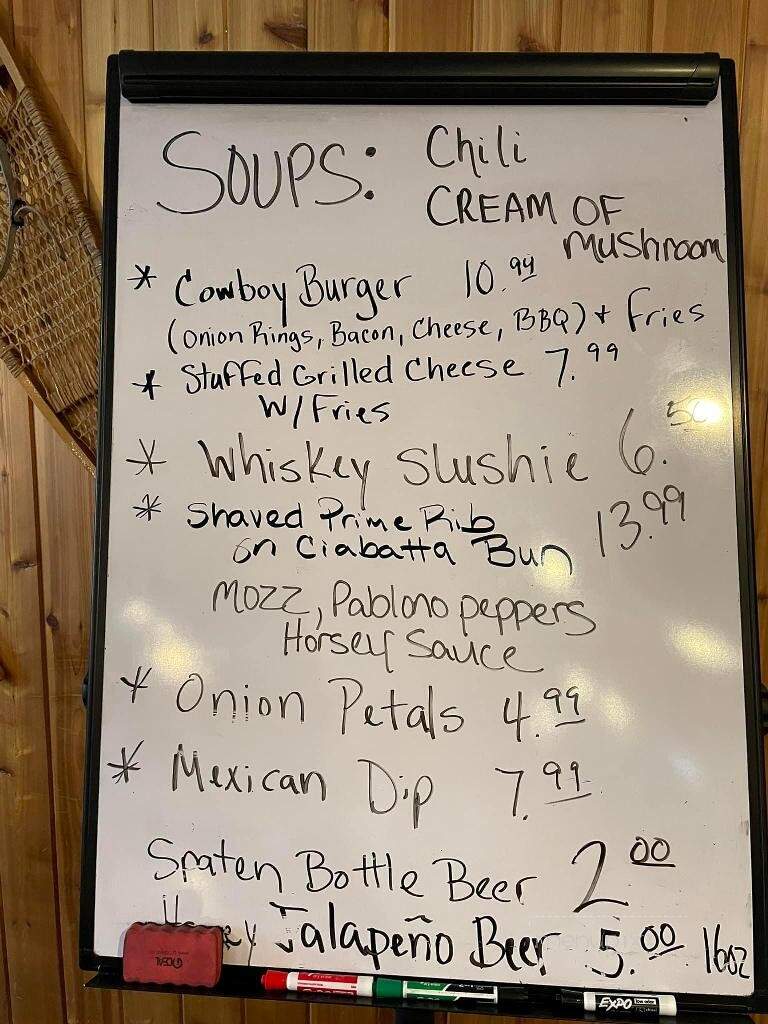 SOUPS: Chili
CREAM OF
MUSHROOM
* Cowboy Burger 10.99
(Onion Rings, Bacon, Cheese, BBQ) + Fries
* Stuffed Grilled Cheese 7.99
W/Fries
* Whiskey Slushie 6.50
* Shaved Prime Rib
on Ciabatta Bun 13.99
Mozz, Pablono peppers
Horsey Sauce
* Onion Petals 4.99
* Mexican Dip 7.99
Spaten Bottle Beer 2.00
Jalapeño Beer 5.00 16oz
EXPO